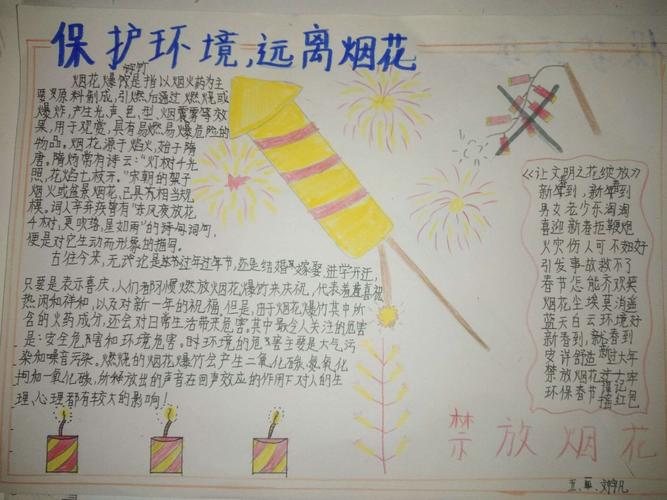 保护环境,远离烟花
烟花爆竹是指以烟火药为主
要原料制成,引燃后通过燃烧或
爆炸,产生光、声、色、型、烟雾等效
果,用于观赏,具有易燃易爆危险的
物品。烟花源于焰火,始于隋
唐。隋炀帝有诗云:“灯树千光
照,花焰七枝开。”宋朝的架子
烟火或盆景烟花,已具有相当规
模。词人辛弃疾曾有“东风夜放花
千树,更吹落,星如雨”的诗词句,
便是对它生动而形象的描写。
古往今来,无论是春节过年过节,还是结婚嫁娶,进学开迁,
只要是表示喜庆,人们都习惯燃放烟花爆竹来庆祝,代表着喜喜祝
热闹和祥和,以及对新一年的祝福。但是,由于烟花爆竹其中所
含的火药成分,还会对日常生活带来危害,其中最令人关注的危害
是:安全危害和环境危害。对环境的危害主要是大气污
染和噪音污染。燃烧的烟花爆竹会产生二氧化硫、氮氧化
物和一氧化碳,所释放出的声音在回声效应的作用下对人的生
理、心理都有较大的影响!
《让文明之花绽放》
新年到,新年到
男女老少乐淘淘
喜迎新春拒鞭炮
火灾伤人可不好
引发事故救不了
春节怎能齐欢笑
烟花尘埃莫消遥
蓝天白云环境好
新春到,新春到
安详舒适过大年
禁放烟花要牢记
环保春节摇红包
禁放烟花